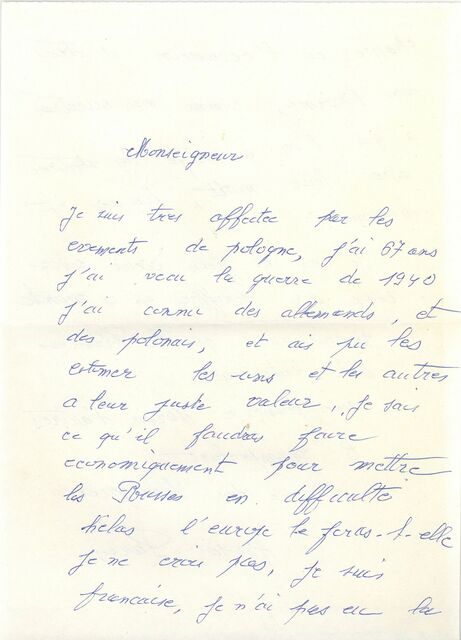 Monseigneur
Je suis tres affectee par les
evements de pologne, j'ai 67 ans
j'ai vecu la guerre de 1940
j'ai connu des allemands, et
des polonais, et ais pu les
estimer les uns et les autres
a leur juste valeur, je sais
ce qu'il faudras faire
economiquement pour mettre
les Rousses en difficulté
helas l'europe le feras-t-elle
je ne crois pas, je suis
francaise, je n'ai pas eu la